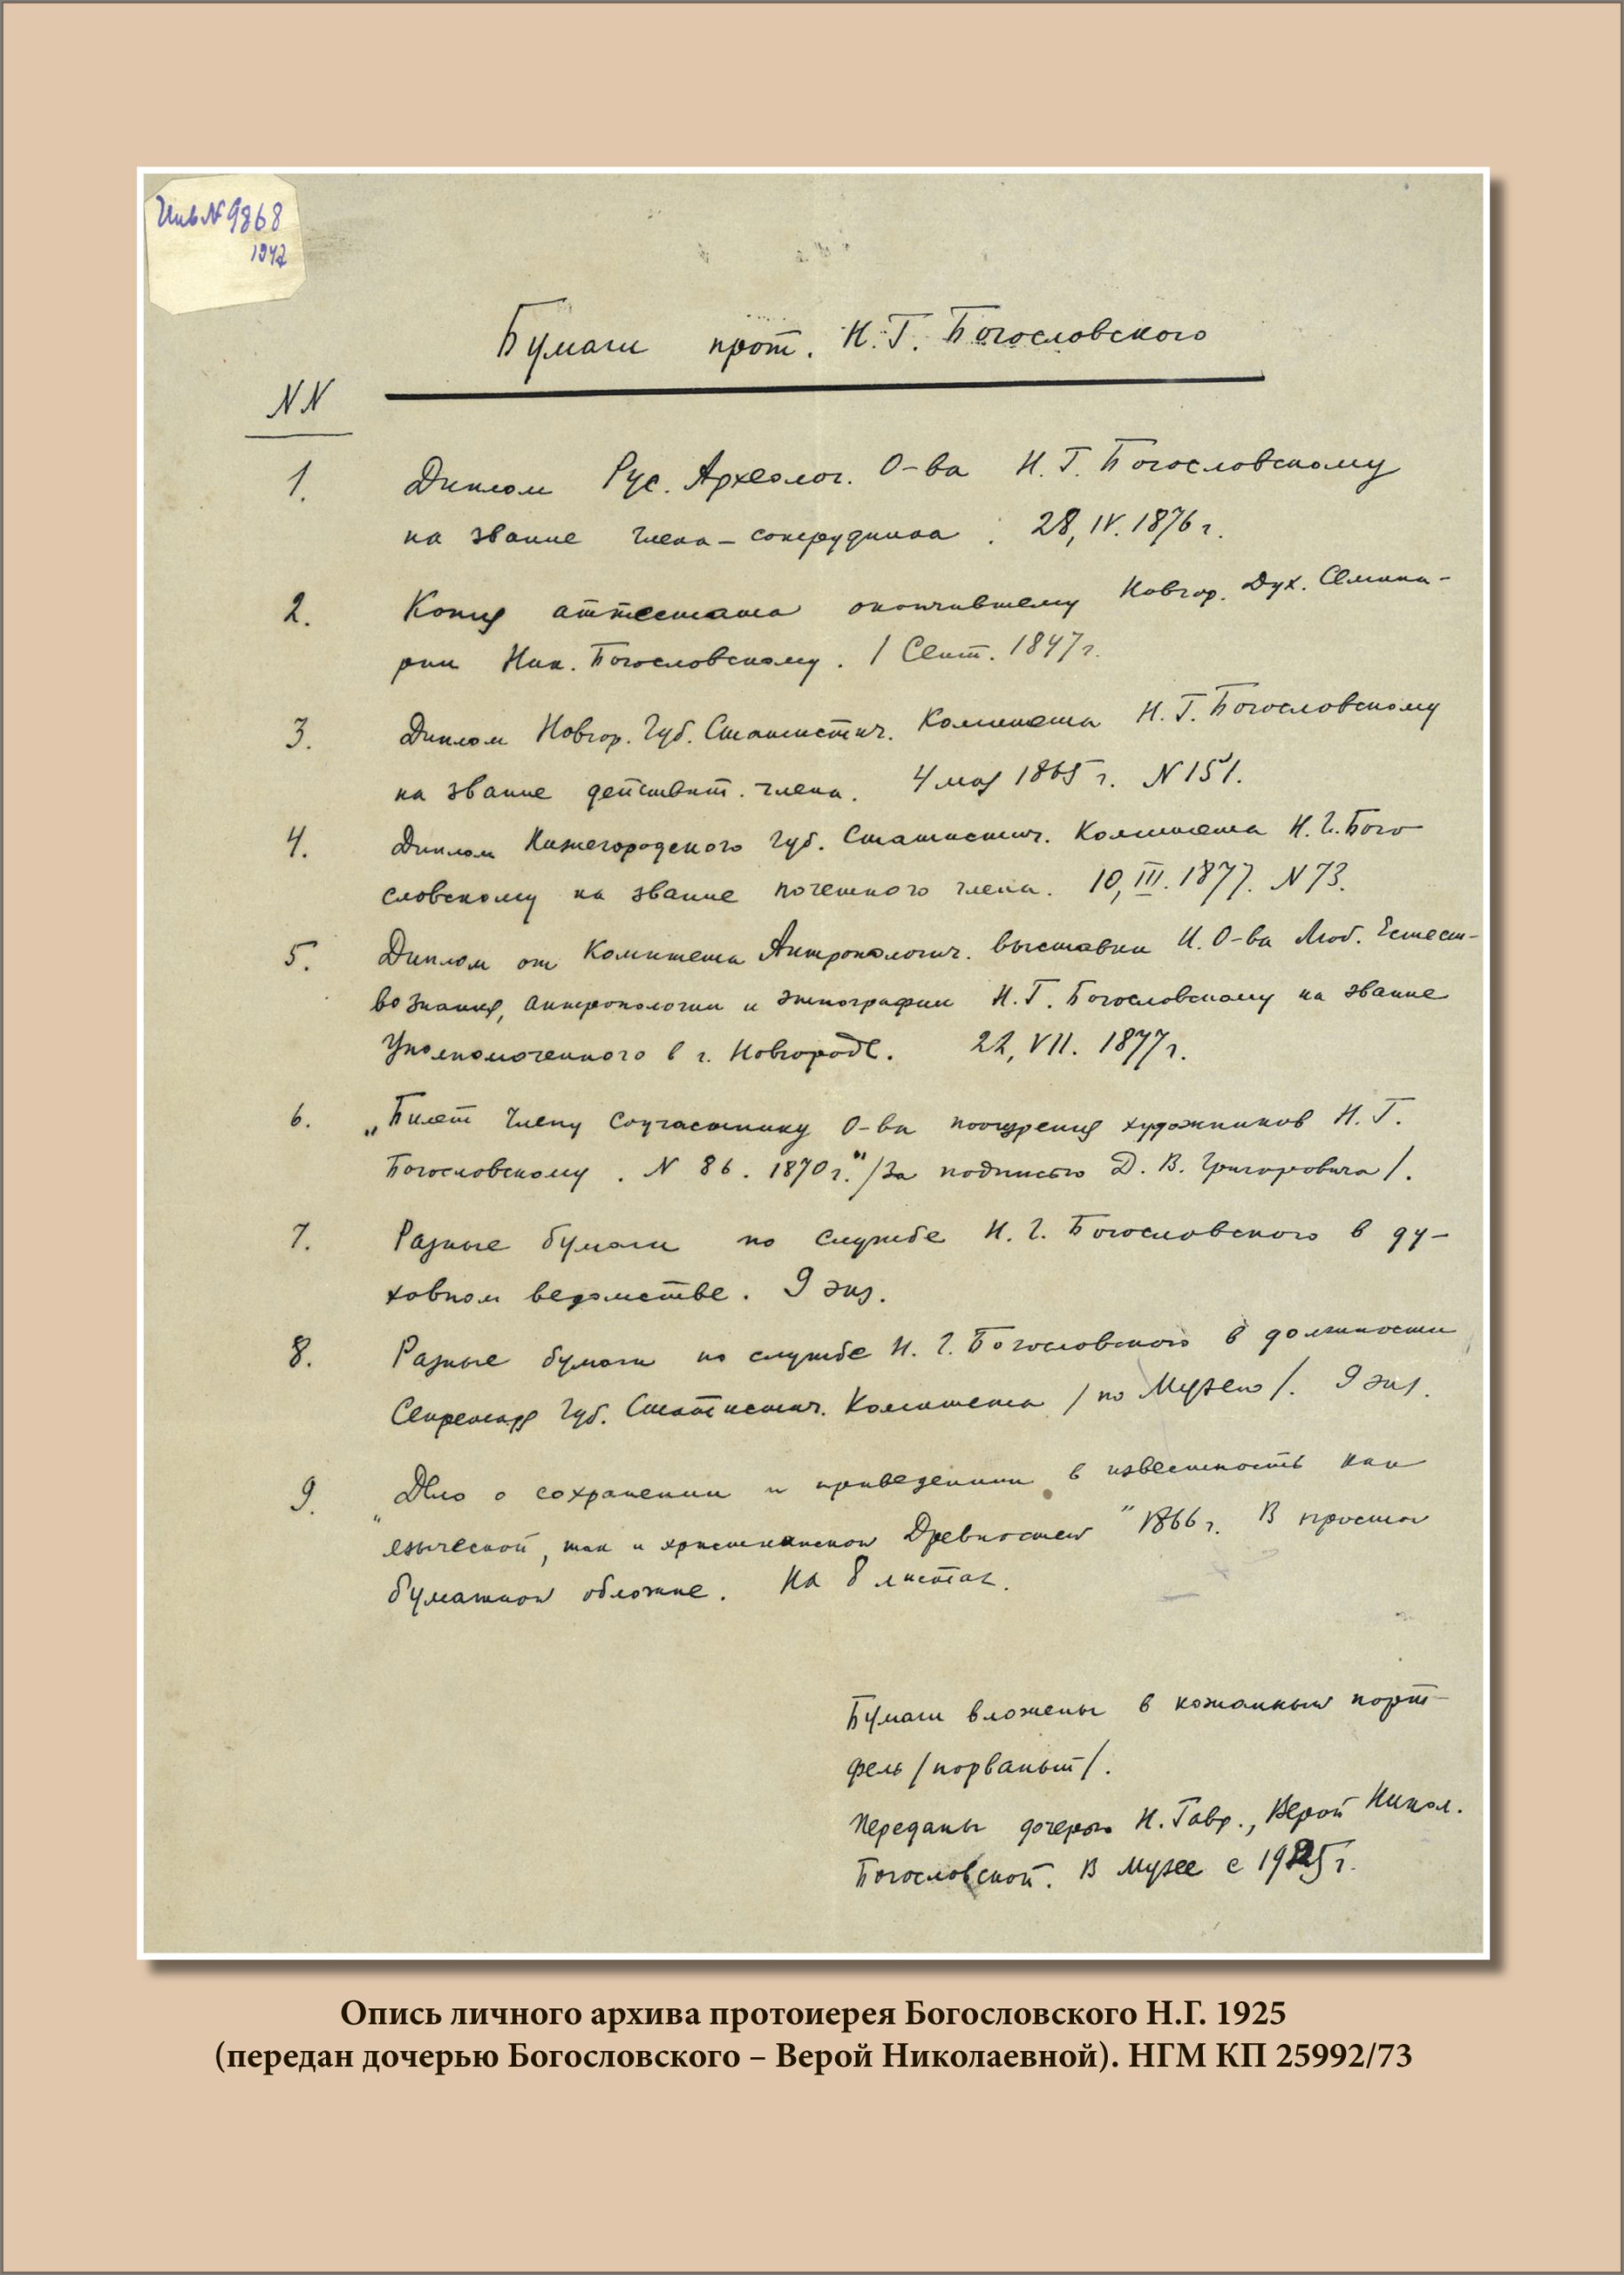 Инв № 9868
1947
Бумаги прот. Н. Г. Богословского
NN
1. Диплом Рус. Археолог. О-ва Н. Г. Богословскому
на звание члена-сотрудника. 28, IV. 1876 г.
2. Копия аттестата окончившему Новгор. Дух. Семина-
рии Ник. Богословскому. 1 Сент. 1847 г.
3. Диплом Новгор. Губ. Статистич. Комитета Н. Г. Богословскому
на звание действит. члена. 4 мая 1865 г. N 151.
4. Диплом Нижегородского Губ. Статистич. Комитета Н. Г. Бого
словскому на звание почетного члена. 10, III. 1877. N 73.
5. Диплом от Комитета Антропологич. выставки И. О-ва Люб. Естест-
вознания, антропологии и этнографии Н. Г. Богословскому на звание
Уполномоченного в г. Новгороде. 22, VII. 1877 г.
6. „Билет Члену Соучастнику О-ва поощрения художников Н. Г.
Богословскому. N 86. 1870 г." /За подписью Д. В. Григоровича/.
7. Разные бумаги по службе Н. Г. Богословского в ду-
ховном ведомстве. 9 экз.
8. Разные бумаги по службе Н. Г. Богословского в должности
Секретаря Губ. Статистич. Комитета /по Музею/. 9 экз.
9. „Дело о сохранении и приведении в известность как
языческой, так и христианской Древностей" 1866 г. В простой
бумажной обложке. На 8 листах.
Бумаги вложены в кожанный порт-
фель /порваный/.
Переданы дочерью Н. Гавр., Верой Никол.
Богословской. В Музее с 1925 г.
Опись личного архива протоиерея Богословского Н.Г. 1925
(передан дочерью Богословского – Верой Николаевной). НГМ КП 25992/73